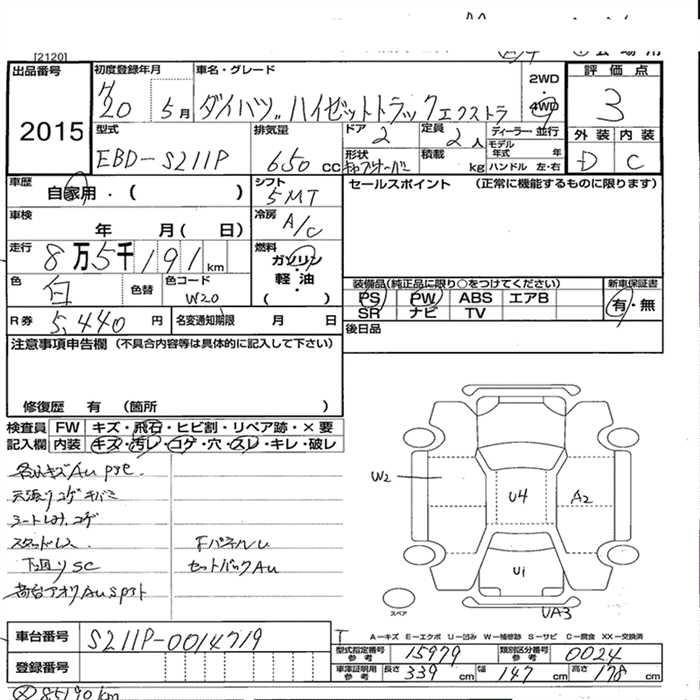 [2120]
出品番号 2015
初度登録年月 H20 5月
車名・グレード ダイハツ ハイゼットトラック エクストラ
2WD・4WD
評価点 3
外装 D 内装 C
型式 EBD-S211P
排気量 650 CC
ドア 2
定員 2人
ディーラー・並行
モデル年式 年
形状
積載 kg
ハンドル 左・右
車歴 自家用・( )
シフト 5MT
セールスポイント (正常に機能するものに限ります)
車検 年 月( 日)
冷房 A/C
走行 8万5千191km
燃料 ガソリン・軽油 ( )
色 白
色替
色コード W20
装備品(純正品に限り○をつけてください)
新車保証書 有・無
PS PW ABS エアB
SR ナビ TV
R券 5,440円
名変通知期限 月 日
後日品
注意事項申告欄 (不具合内容等は具体的に記入して下さい)
修復歴 有 (箇所 )
検査員記入欄
FW キズ・飛石・ヒビ割・リペア跡・×要
内装 キズ・汚レ・コゲ・穴・スレ・キレ・破レ
シートしみ、コゲ
スタッドレス
下回りSC
荷台アオリAu
セットバックAu
W2
U4
A2
U1
UA3
スペア
A-キズ E-エクボ U-凹み W-補修跡 S-サビ C-腐食 XX-交換済
車台番号 S211P-0014719
登録番号
型式指定番号 参考 15979
類別区分番号 参考 0024
車庫証明用 参考 長さ 339cm 幅 147cm 高さ 178cm
85190km